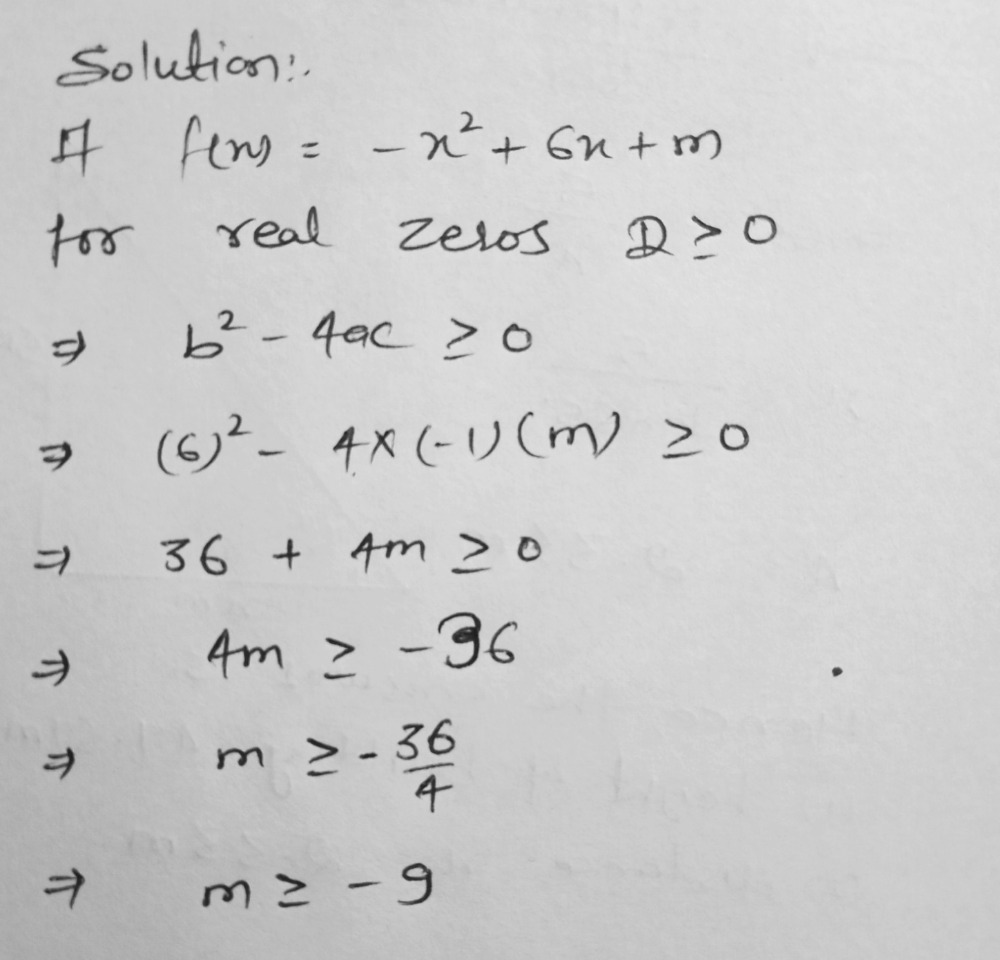 Solution:.
If f(x) = -x² + 6x + m
for real zeros D ≥ 0
⇒ b² - 4ac ≥ 0
⇒ (6)² - 4×(-1)(m) ≥ 0
⇒ 36 + 4m ≥ 0
⇒ 4m ≥ -36
⇒ m ≥ -36/4
⇒ m ≥ -9